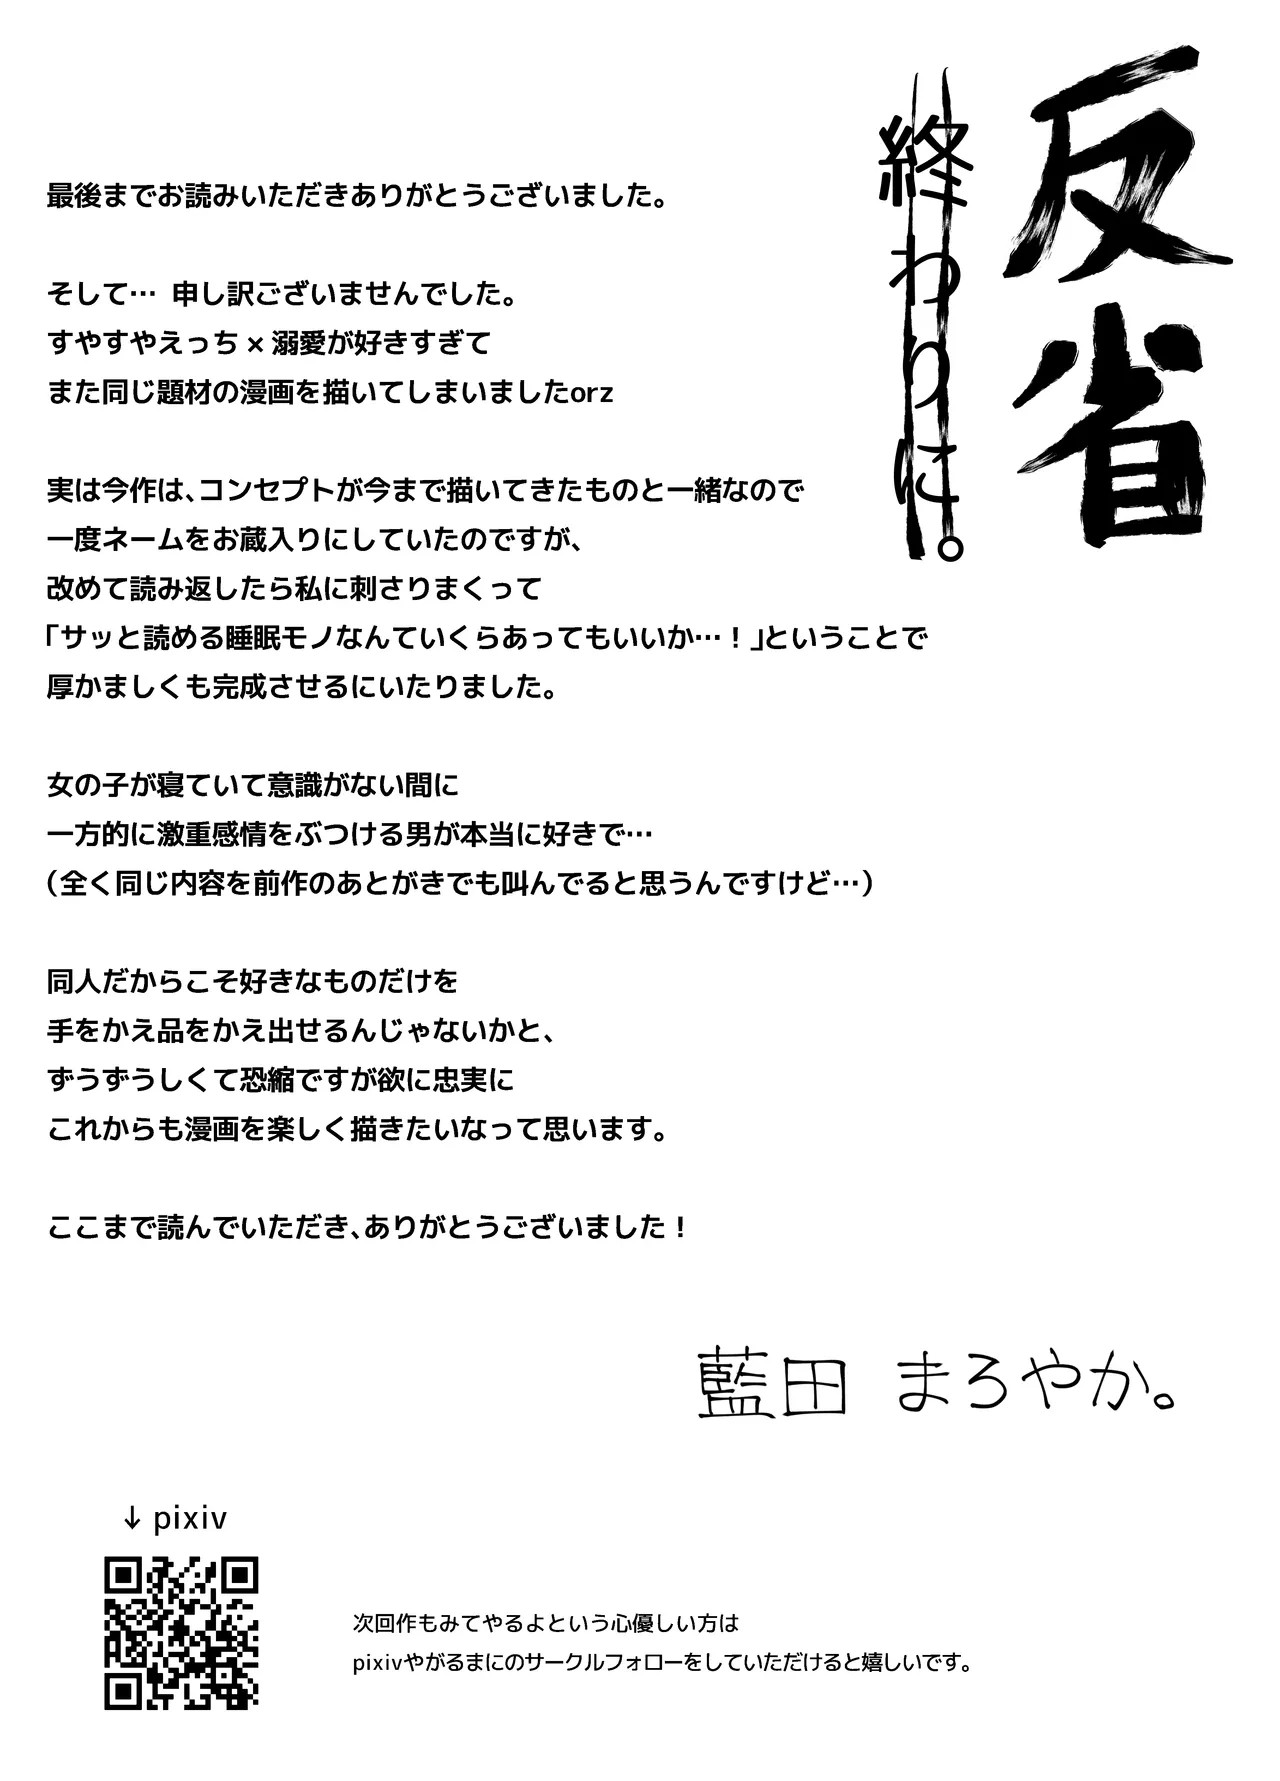 反省
終わりに。
最後までお読みいただきありがとうございました。
そして… 申し訳ございませんでした。
すやすやえっち × 溺愛が好きすぎて
また同じ題材の漫画を描いてしまいましたorz
実は今作は、コンセプトが今まで描いてきたものと一緒なので
一度ネームをお蔵入りにしていたのですが、
改めて読み返したら私に刺さりまくって
「サッと読める睡眠モノなんていくらあってもいいか…！」ということで
厚かましくも完成させるにいたりました。
女の子が寝ていて意識がない間に
一方的に激重感情をぶつける男が本当に好きで…
（全く同じ内容を前作のあとがきでも叫んでると思うんですけど…）
同人だからこそ好きなものだけを
手をかえ品をかえ出せるんじゃないかと、
ずうずうしくて恐縮ですが欲に忠実に
これからも漫画を楽しく描きたいなって思います。
ここまで読んでいただき、ありがとうございました！
藍田 まろやか。
↓ pixiv
次回作もみてやるよという心優しい方は
pixivやがるまにのサークルフォローをしていただけると嬉しいです。